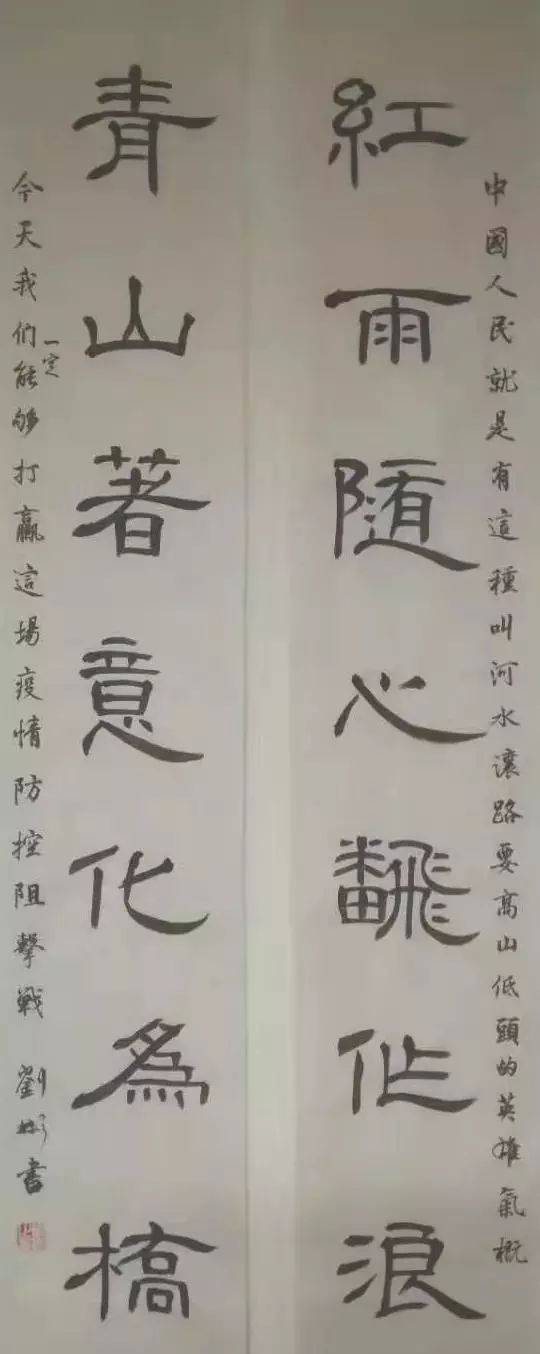 中國人民就是有這種叫河水讓路要高山低頭的英雄氣概
紅雨隨心飜作浪
青山著意化為橋
今天我们一定能够打贏這場疫情防控阻擊戰
劉彬書